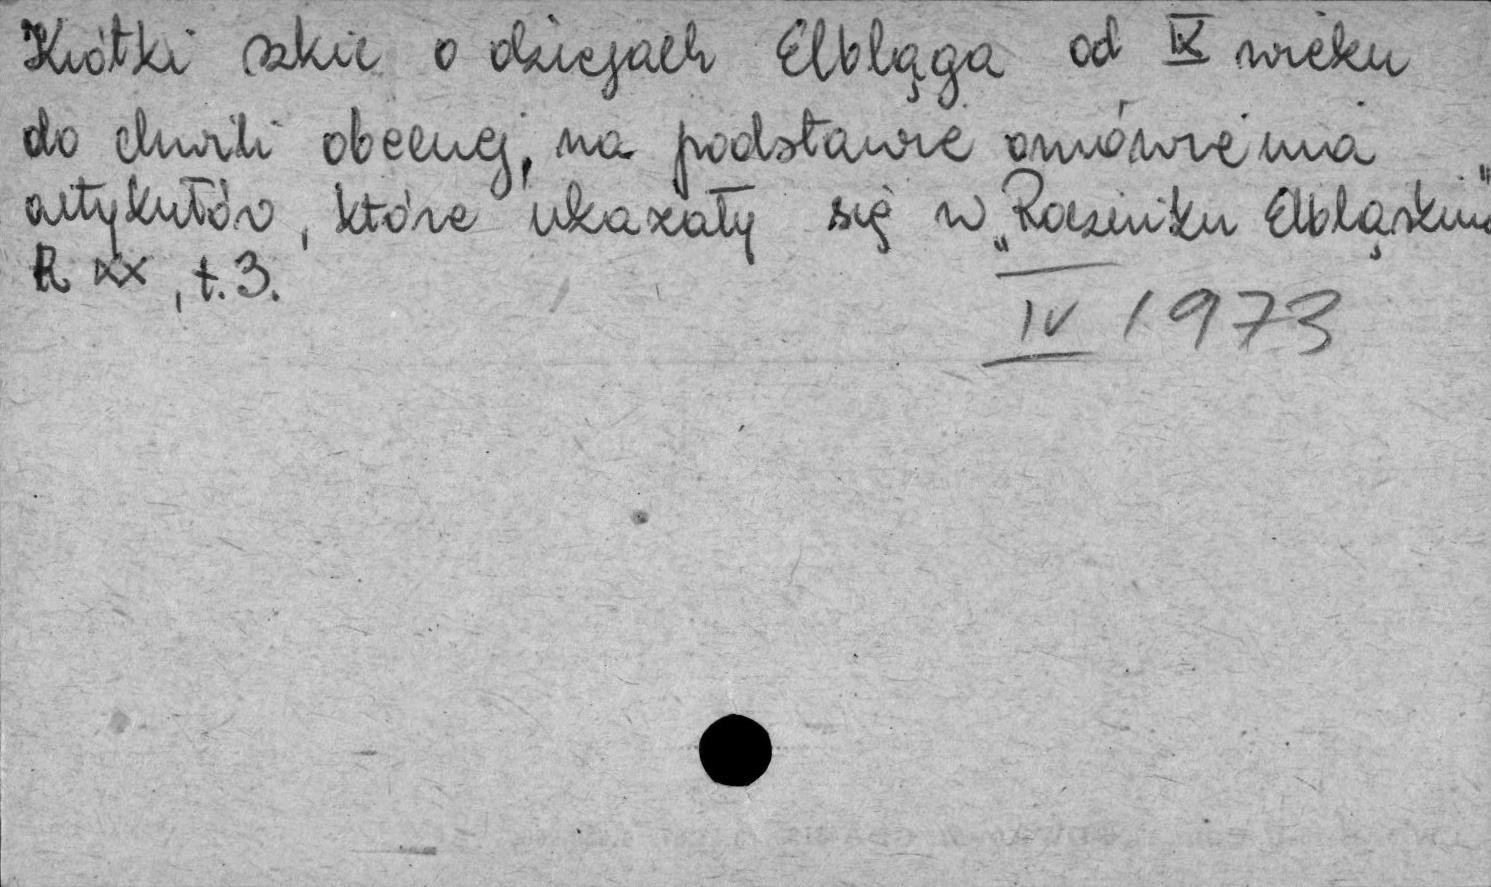 Krótki szkic o dziejach Elbląga od IX wieku
do chwili obecnej, na podstawie omówienia
artykułów, które ukazały się w „Roczniku Elbląskim”
R XX, t. 3.
IV 1973